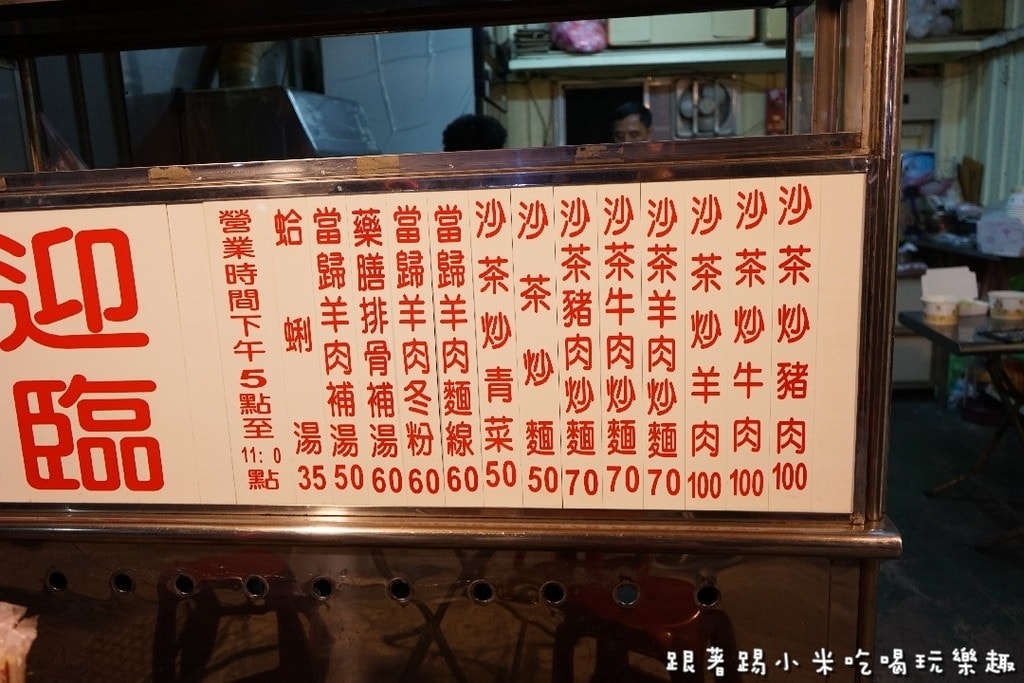 沙茶炒豬肉100
沙茶炒牛肉100
沙茶炒羊肉100
沙茶羊肉炒麵70
沙茶牛肉炒麵70
沙茶豬肉炒麵70
沙茶炒麵50
沙茶炒青菜50
當歸羊肉麵線60
當歸羊肉冬粉60
藥膳排骨補湯60
當歸羊肉補湯50
蛤蜊湯35
營業時間下午5點至11:0點
迎臨
跟著踢小米吃喝玩樂趣